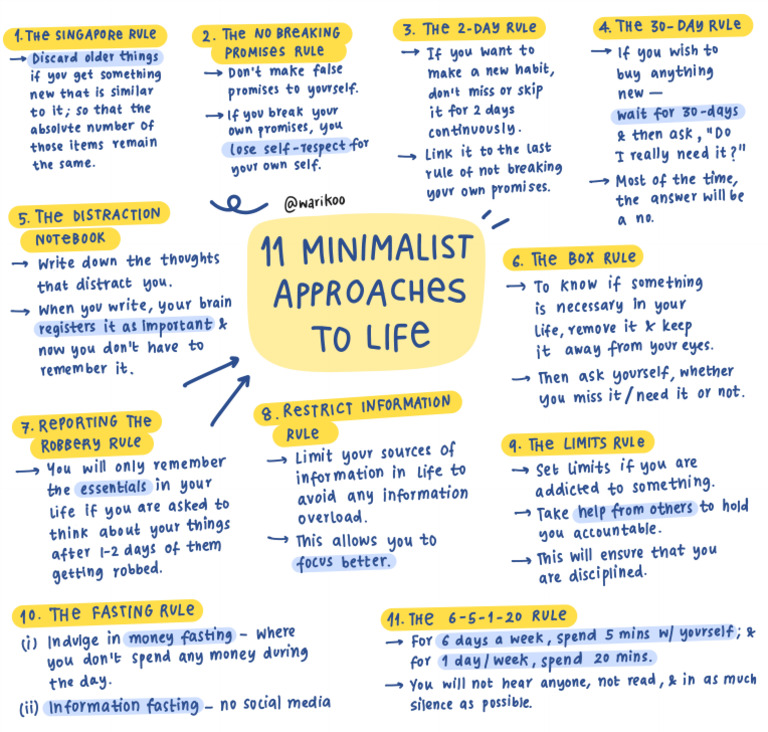 1. THE SINGAPORE RULE
→ Discard older things
if you get something
new that is similar
to it; so that the
absolute number of
those items remain
the same.
2. THE NO BREAKING
PROMISES RULE
→ Don't make false
promises to yourself.
→ If you break your
own promises, you
lose self-respect for
your own self.
3. THE 2-DAY RULE
→ If you want to
make a new habit,
don't miss or skip
it for 2 days
continuously.
→ Link it to the last
rule of not breaking
your own promises.
4. THE 30-DAY RULE
→ If you wish to
buy anything
new —
wait for 30-days
& then ask, "Do
I really need it?"
→ Most of the time,
the answer will be
a no.
@warikoo
11 MINIMALIST
APPROACHES
TO LIFE
5. THE DISTRACTION
NOTEBOOK
→ Write down the thoughts
that distract you.
→ When you write, your brain
registers it as important &
now you don't have to
remember it.
6. THE BOX RULE
→ To know if something
is necessary in your
life, remove it & keep
it away from your eyes.
→ Then ask yourself, whether
you miss it/need it or not.
7. REPORTING THE
ROBBERY RULE
→ You will only remember
the essentials in your
life if you are asked to
think about your things
after 1-2 days of them
getting robbed.
8. RESTRICT INFORMATION
RULE
→ Limit your sources of
information in life to
avoid any information
overload.
→ This allows you to
focus better.
9. THE LIMITS RULE
→ Set limits if you are
addicted to something.
→ Take help from others to hold
you accountable.
→ This will ensure that you
are disciplined.
10. THE FASTING RULE
(i) Indulge in money fasting – where
you don't spend any money during
the day.
(ii) Information fasting – no social media
11. THE 6-5-1-20 RULE
→ For 6 days a week, spend 5 mins w/ yourself; &
for 1 day/week, spend 20 mins.
→ You will not hear anyone, not read, & in as much
silence as possible.